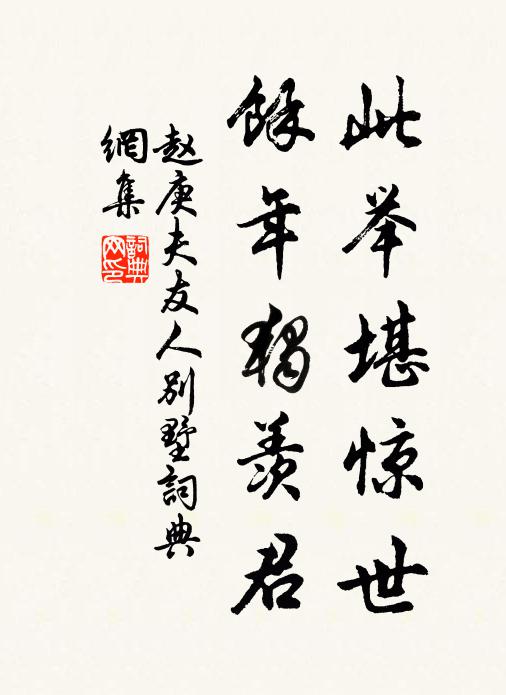 此举堪惊世
馀年独羡君
赵庚夫友人别墅词典
網集
詞典网印